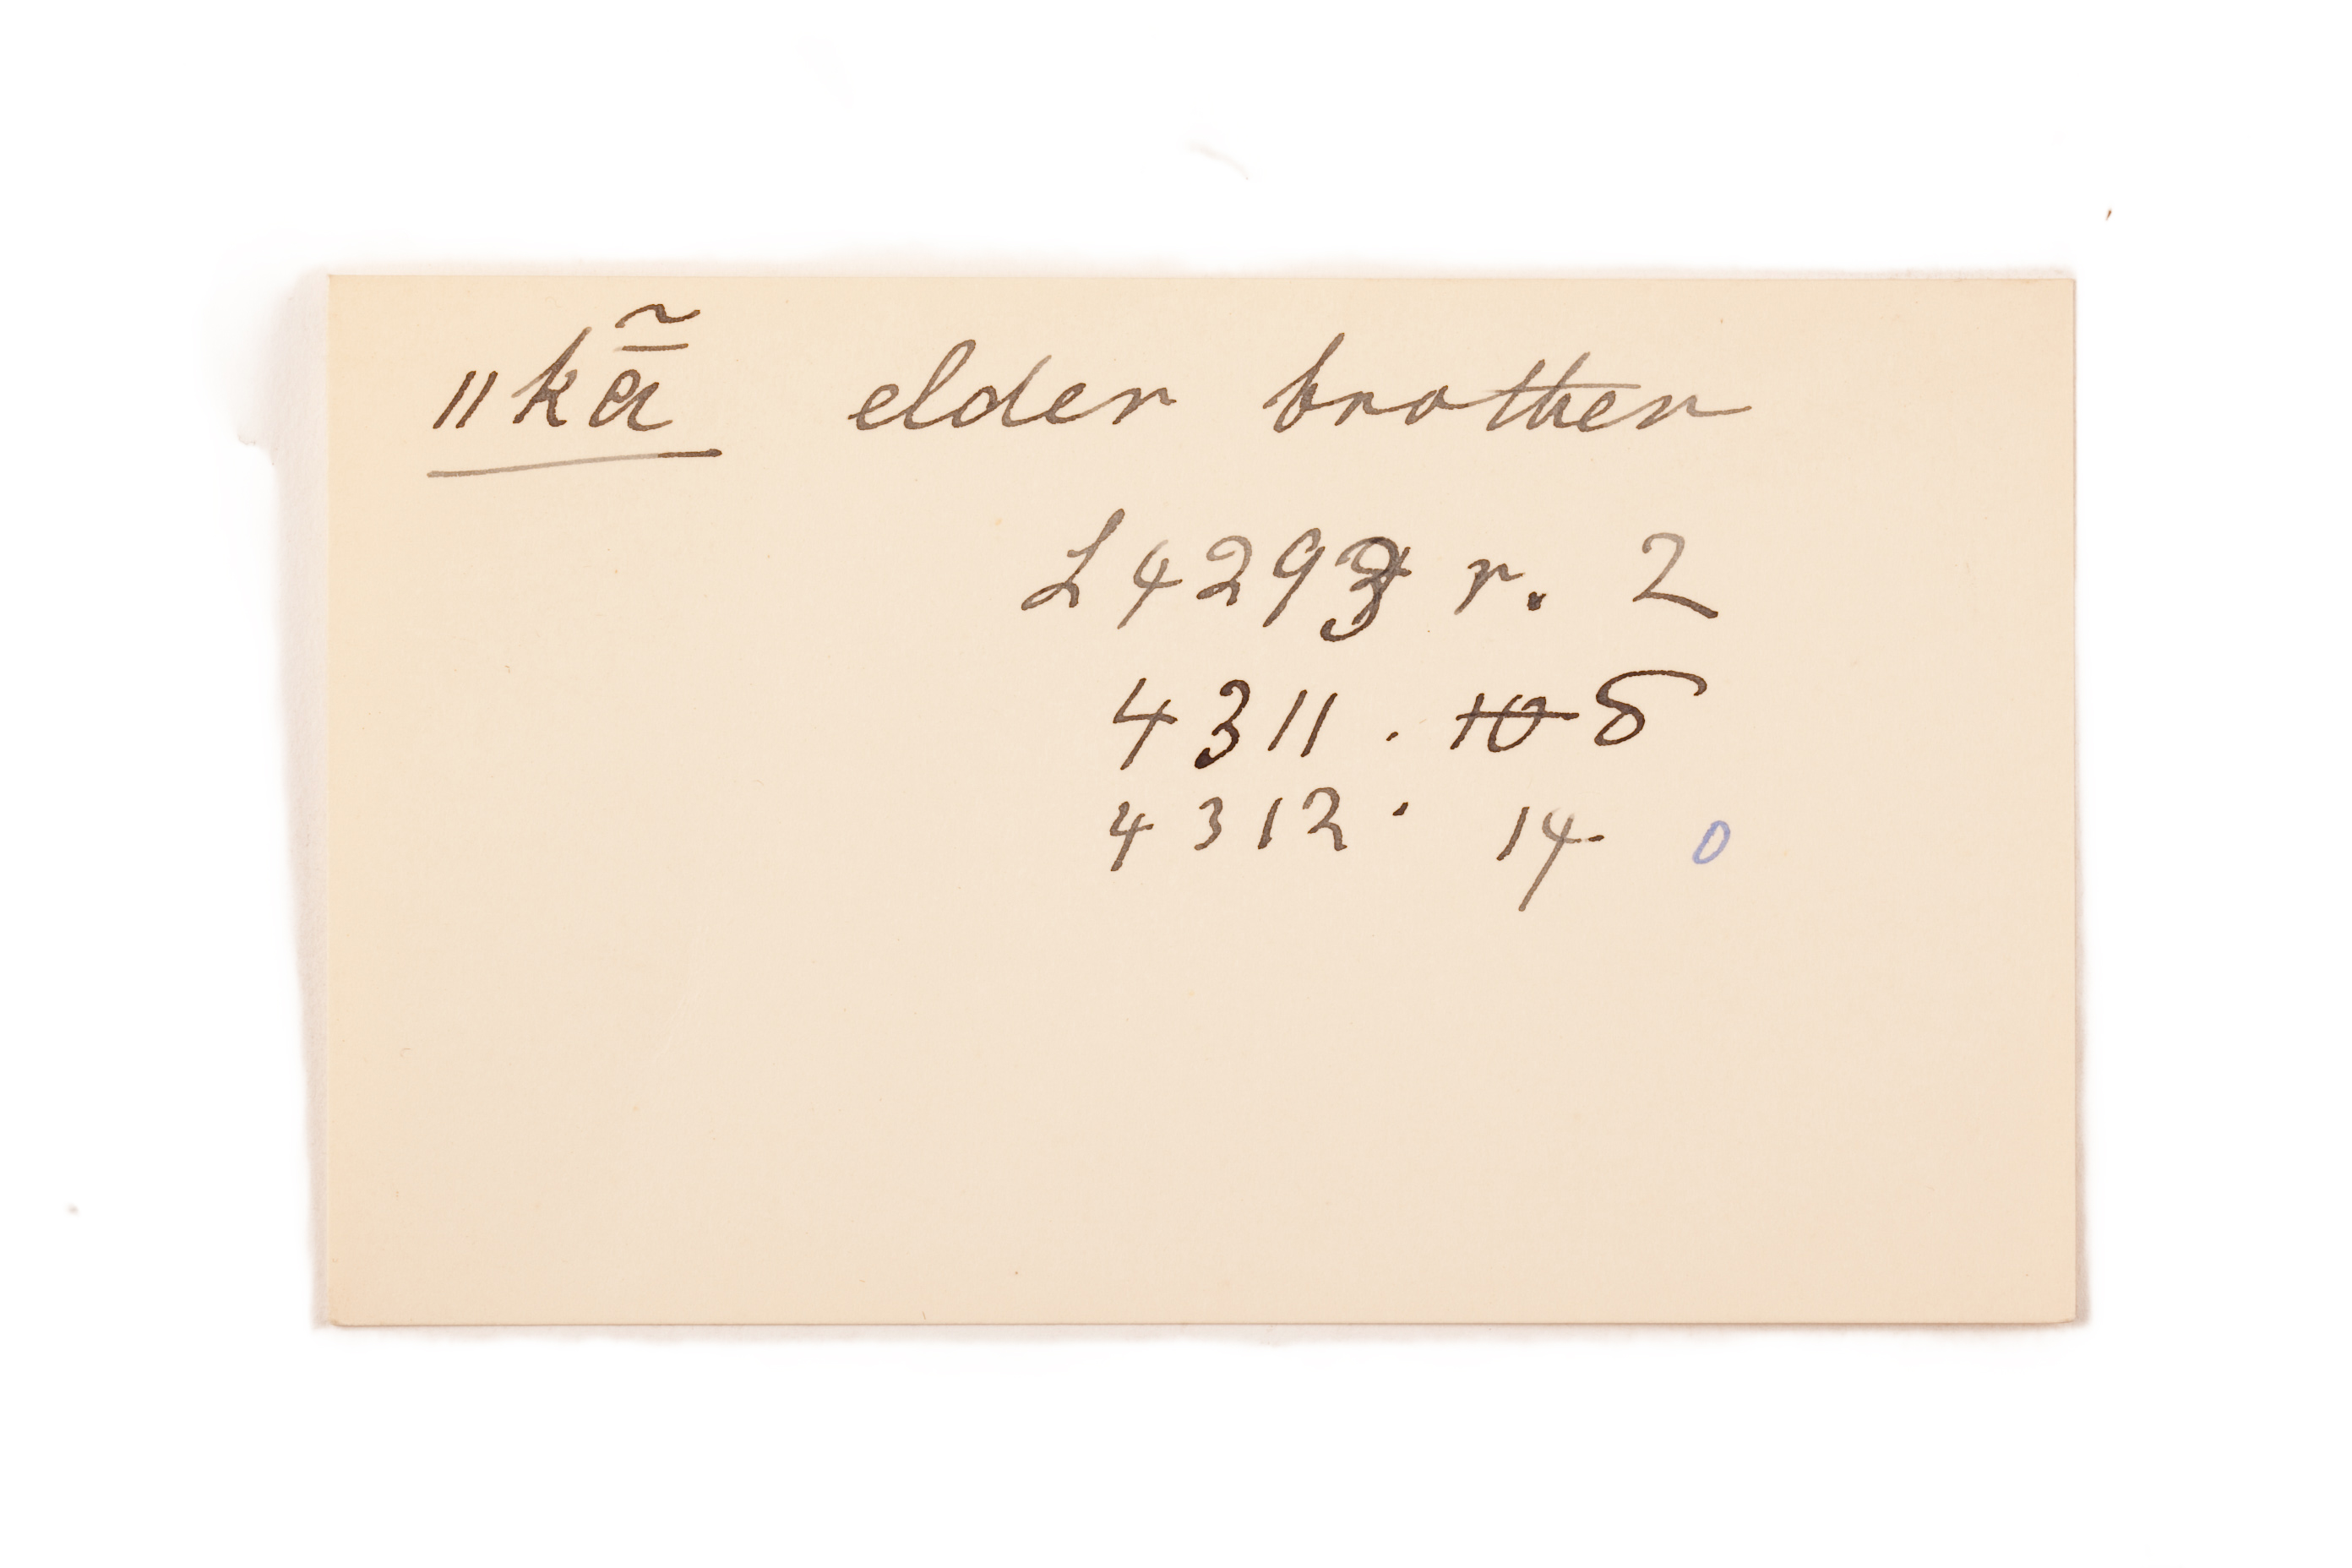 ǁkā̃ elder brother
L 4293 r. 2
4311 . ~~10~~ 8
4312 . 14 0